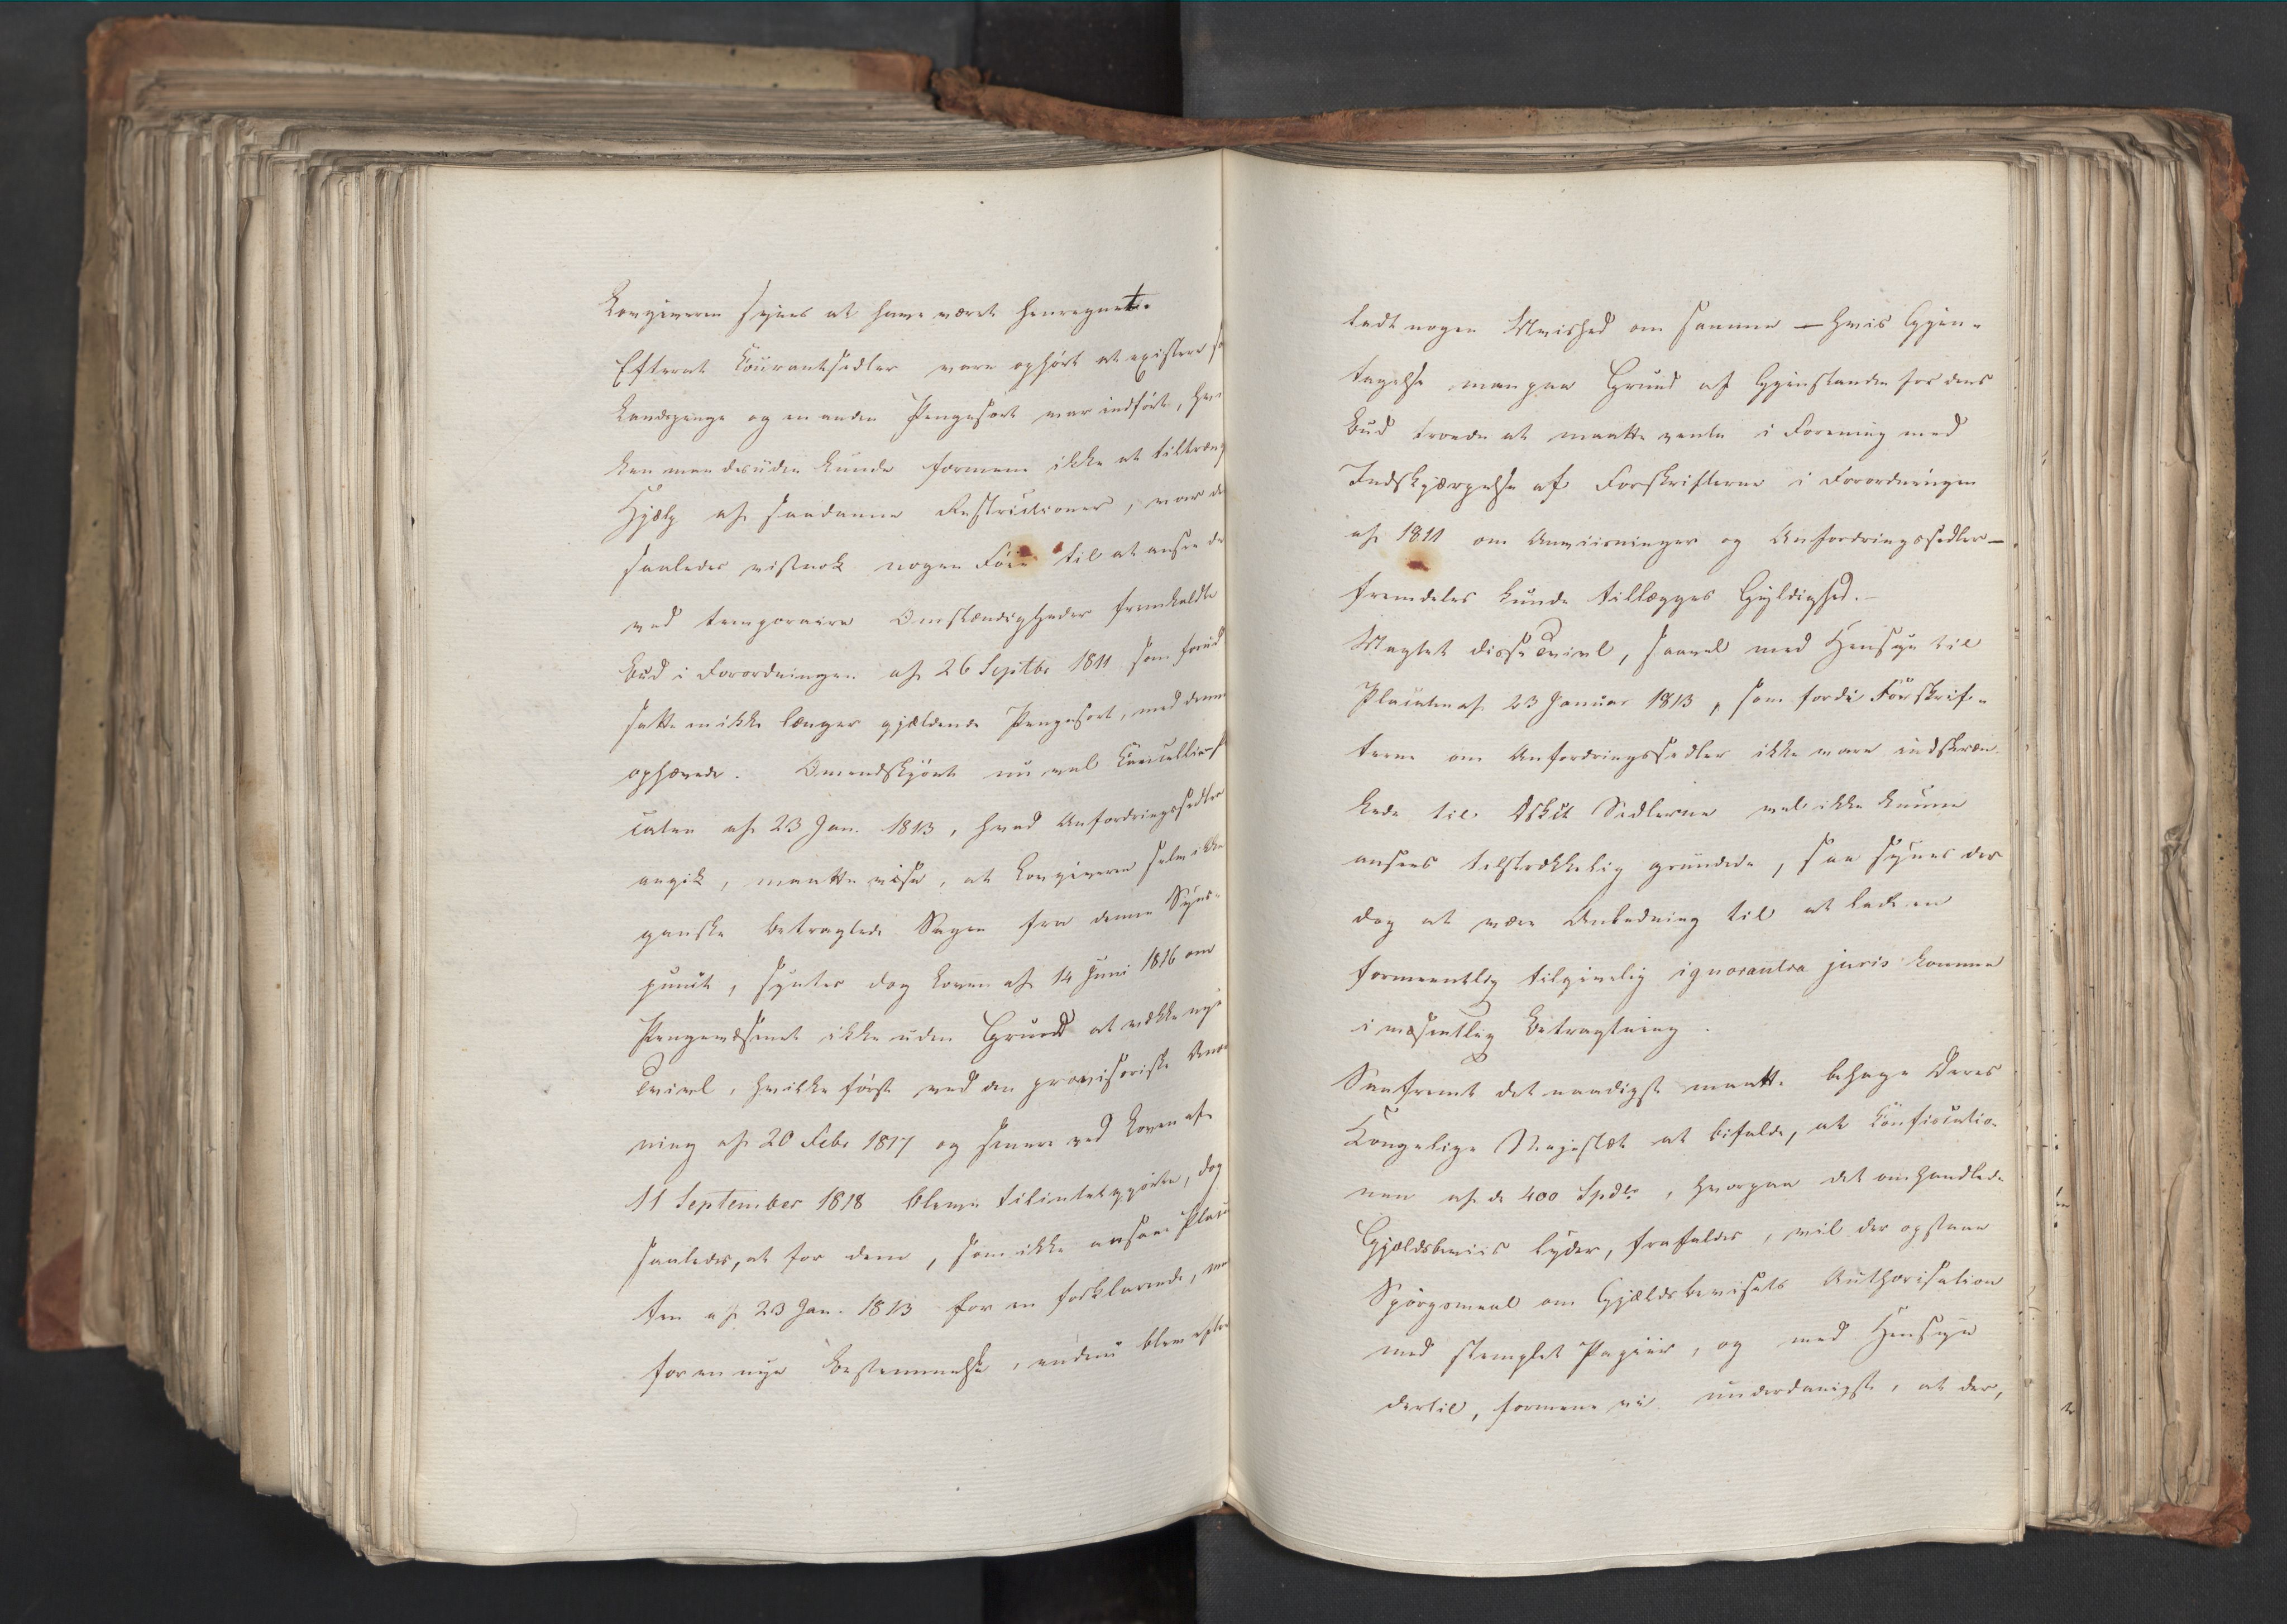 Lovgiveren synes at have været henregnet.
Efterat Courantsedler vare ophørt at existere so
Landspenge og en anden Pengesort var indført, hvil
ken man desuden kunde formene ikke at tiltræng
Hjælp af saadanne Restrictioner, var de
saaledes vistnok nogen Föie til at ansee de
ved temporaire Omstændigheder fremkaldte
Bud i Forordningen af 26 Septbr 1811 som forud
satte en ikke længer gjældende Pengesort, med denne
ophævede. Omendskjönt nu vel Cancellie-P
caten af 23 Jan. 1813, hvad Anfordringssedler
angik, maatte vise, at Lovgiveren selv ikke
ganske betragtede Sagen fra denne Syns-
punct, syntes dog Loven af 14 Juni 1816 om
Pengevæsenet ikke uden Grund at vække nye
Tvivl, hvilke først ved den provisoriske Anor
ning af 20 Febr 1817 og senere ved Loven af
11 September 1818 bleve tilintetgjorte, dog
saaledes, at for dem, som ikke ansaae Placa
ten af 23 Jan. 1813 for en forklarende, men
for en nye Bestemmelse, endnu blev efter
ladt nogen Uvished om samme – hvis Gjen-
tagelse man paa Grund af Gjenstanden for dens
Bud troede at maatte vente i Forening med
Indskjærpelse af Forskrifterne i Forordningen
af 1811 om Anviisninger og Anfordringssedler –
fremdeles kunde tillægges Gyldighed. –
Uagtet disse Tvivl, saavel med Hensyn til
Placaten af 23 Januar 1813, som fordi Forskrif-
terne om Anfordringssedler ikke vare indskræn-
kede til Sedlerne vel ikke kunne
ansees tilstrækkelig grundede, saa synes der
dog at være Anledning til at lade en
formeentlig tilgivelig ignorantia juris komme
i væsentlig Betragtning.
Saafremt det naadigst maatte behage Deres
Kongelige Majestæt at bifalde, at Confiscatio-
nen af de 400 Spdlr, hvorpaa det omhandlede
Gjældsbeviis lyder, frafaldes, vil der opstaae
Spörgsmaal om Gjældsbevisets Authorisation
med stemplet Papiir, og med Hensyn
dertil, formene vi underdanigst, at der,